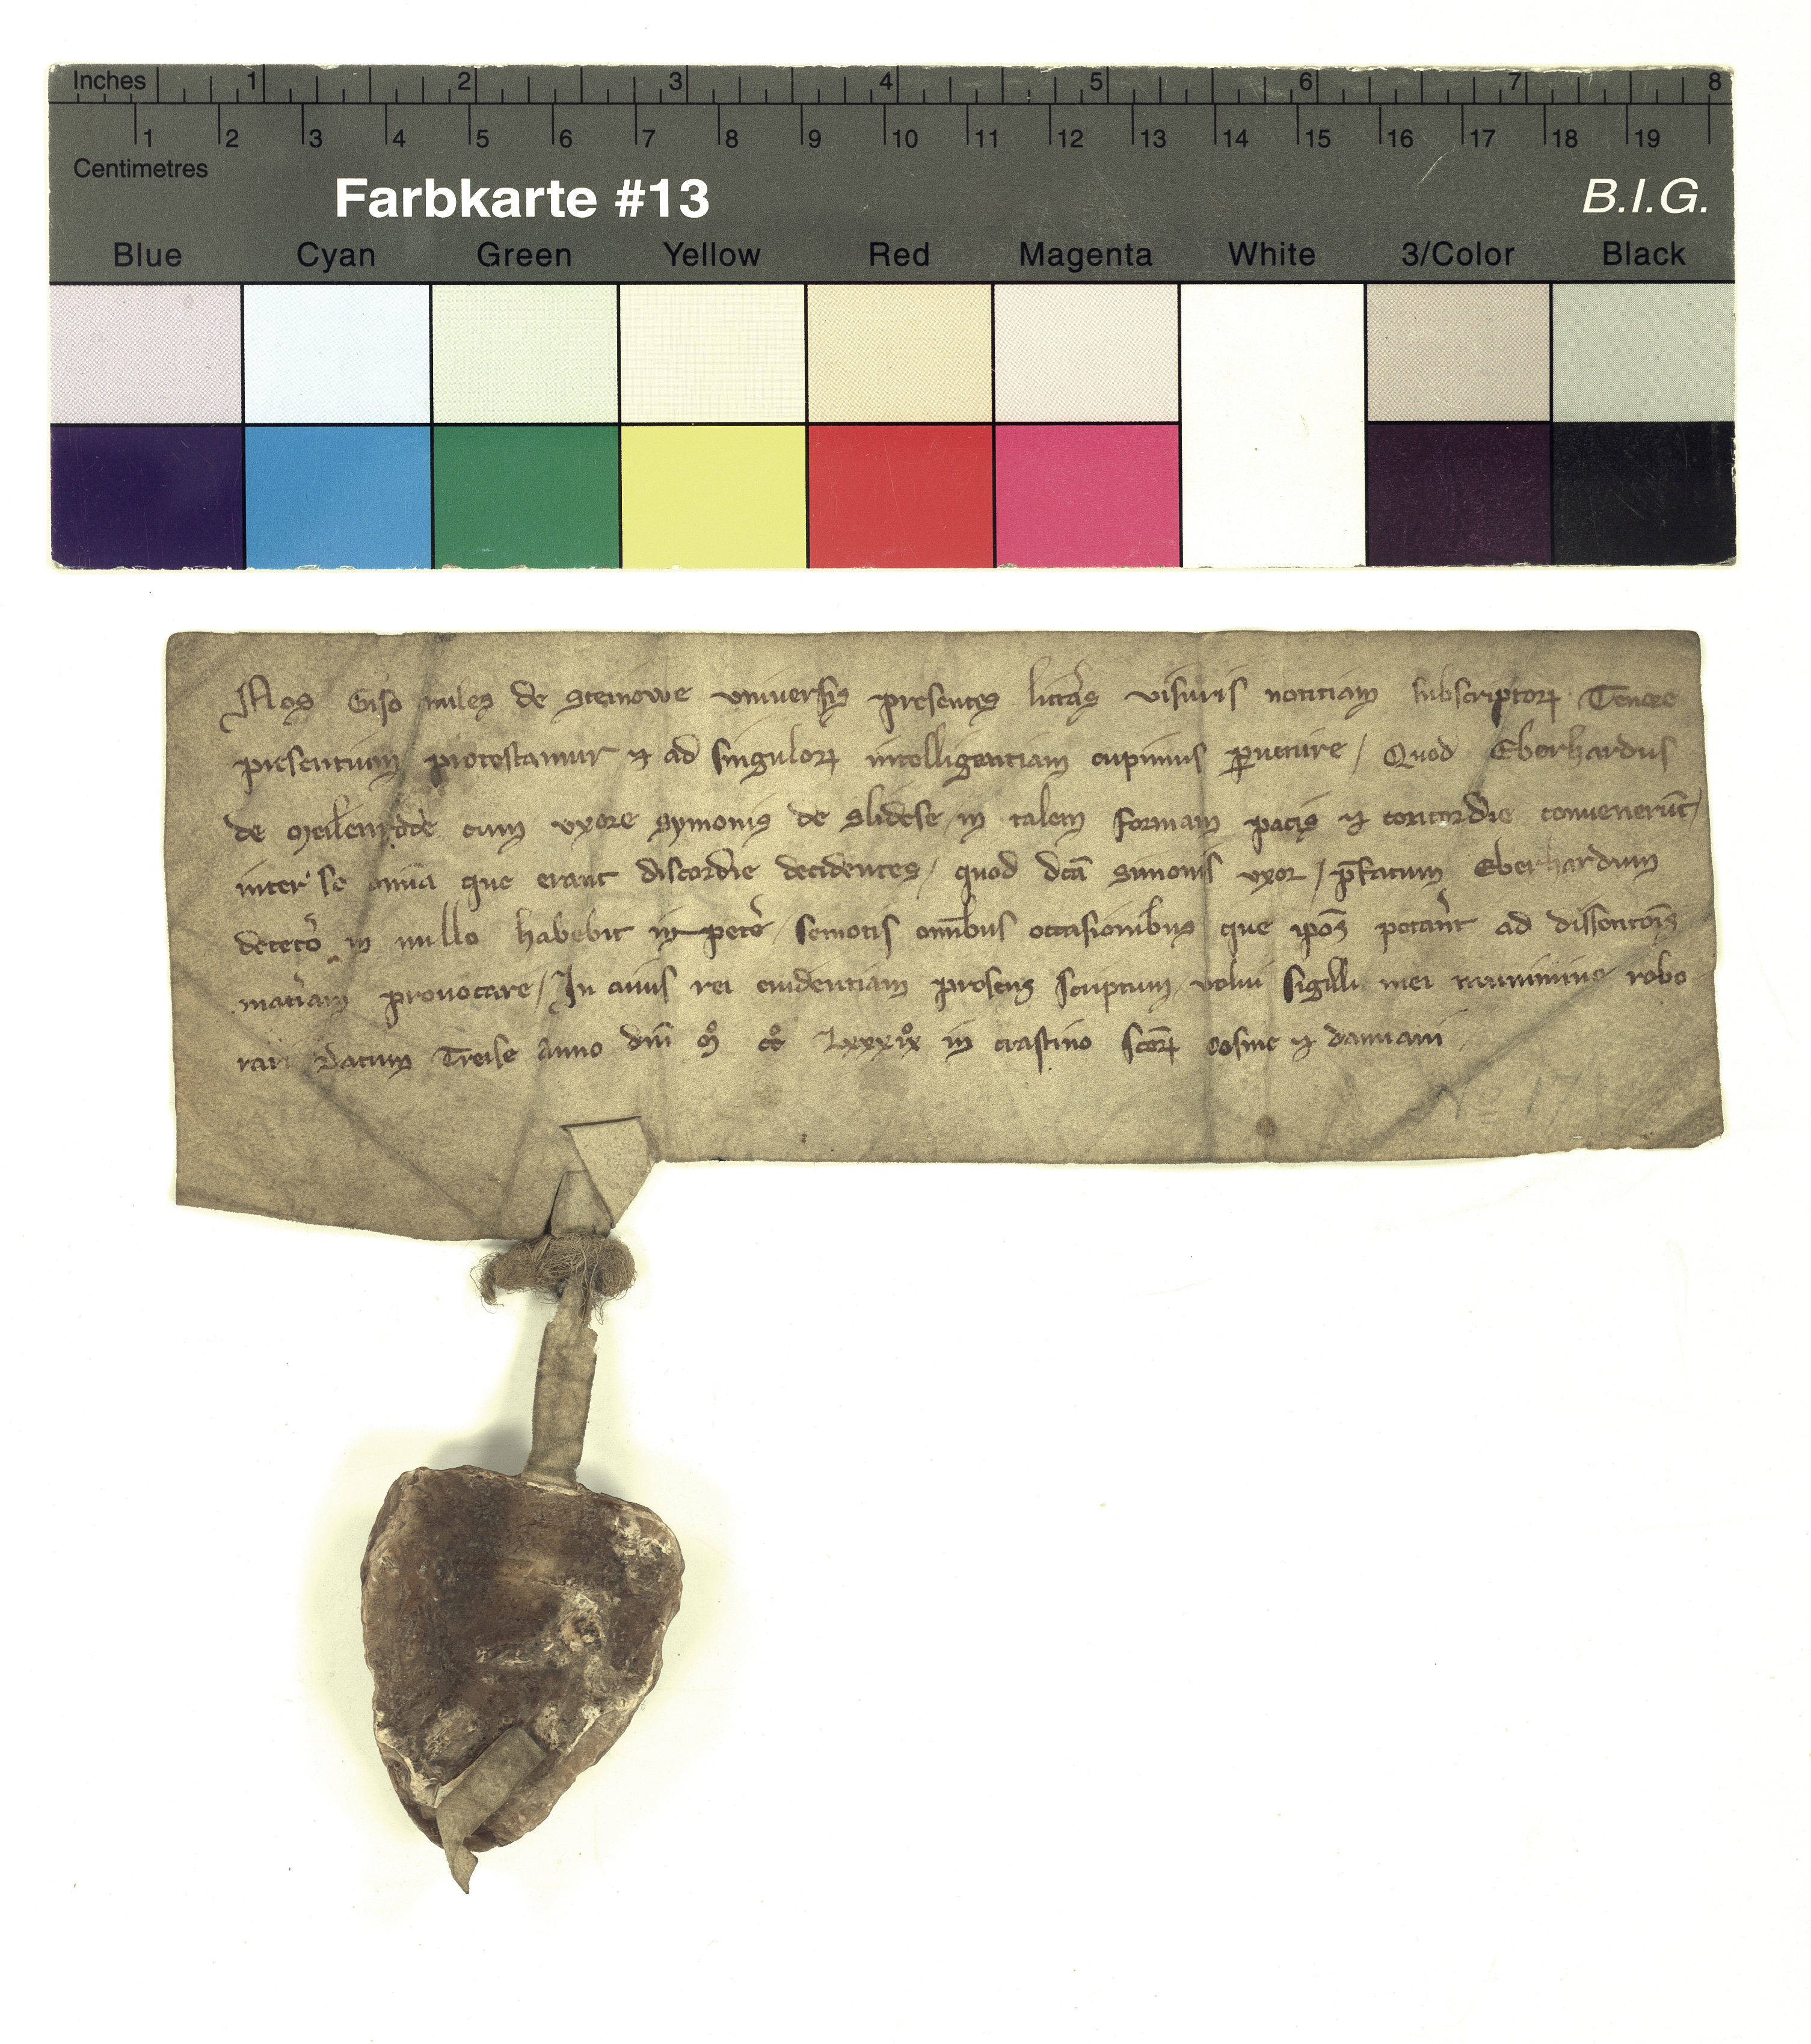 Inches 1 2 3 4 5 6 7 8
1 2 3 4 5 6 7 8 9 10 11 12 13 14 15 16 17 18 19
Centimetres
Farbkarte #13
B.I.G.
Blue Cyan Green Yellow Red Magenta White 3/Color Black
Nos Giso miles de Steinowe vniversis presentes litt̾as visuris notitiam subscriptoꝝ Tenore
presentium protestamur ⁊ ad singuloꝝ intelligentiam cupimus ꝑuenire / Quod Eberhardus
de cum vxore Symonis de Slidese in talem formam pacis ⁊ concordie conuenerūt /
inter se om̄ia que erant discordie decidentes / quod dcā Simonis vxor / p̄fatum Eberhardum
detet̾o in nullo habebit in pet̾e / semotis omībus occasionibus que ip̄os pot̾ant ad dissentōis
mat̾iam prouocare / In cuius rei euidentiam presens scriptum volui sigilli mei munimine robo
rari Datum Treise Anno dn̄i mͦ ccͦ Lxxxixͦ in crastino sc̄oꝝ Cosme ⁊ damiani .
Nº 17